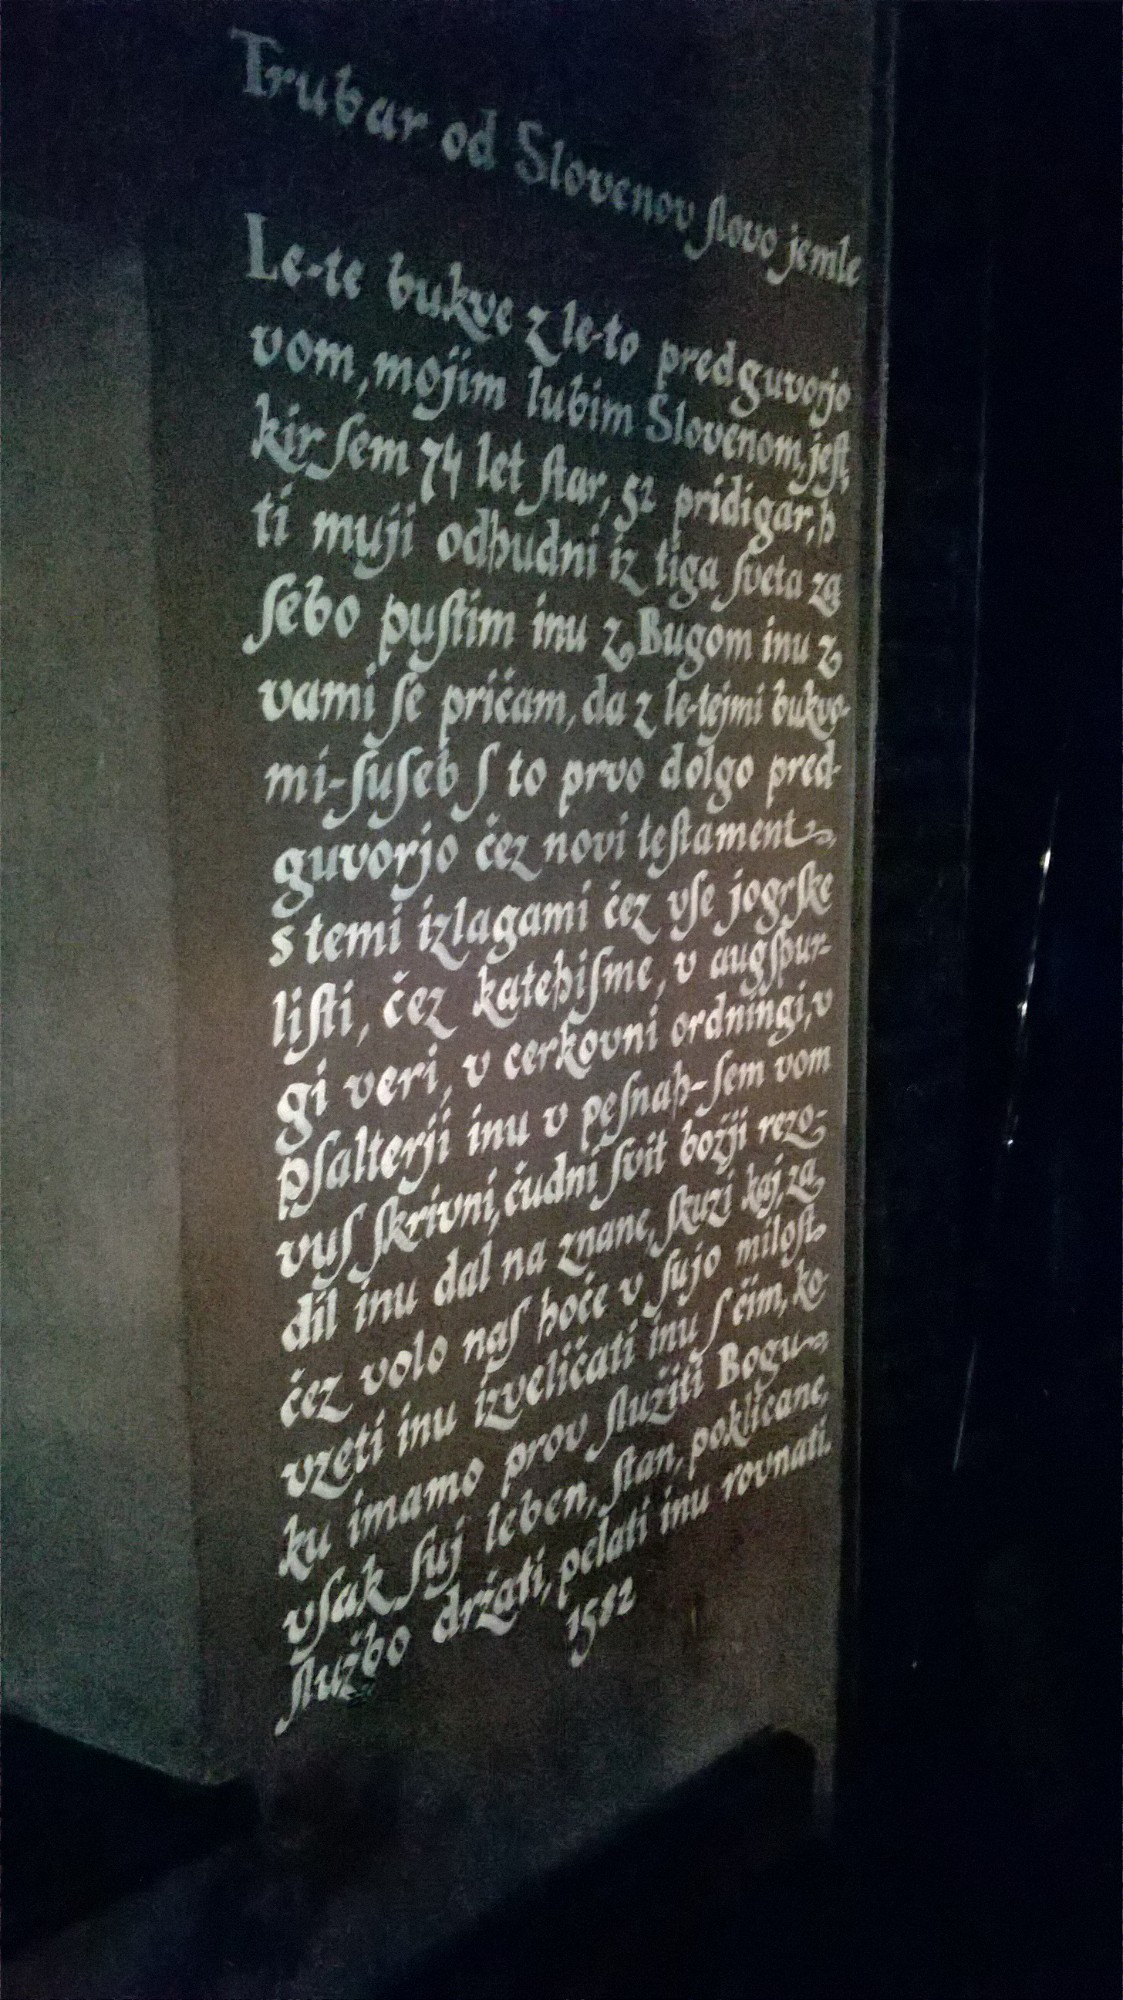 Trubar od Slovenov ſlovo jemle
Le-te bukve z le-to predguvorjo
vom, mojim lubim Slovenom, jeſt,
kir ſem 74 let ſtar, 52 pridigar, h
ti muji odhudni iz tiga ſveta za
ſebo puſtim inu z Bugom inu z
vami ſe pričam, da z le-tejmi bukve-
mi-ſuſeb ſ to prvo dolgo pred-
guvorjo čez novi teſtament,
s temi izlagami čez vſe jogrſke
liſti, čez katehiſme, v augſpur-
gi veri, v cerkovni ordningi, v
pſalterji inu v peſnah-ſem vom
vuſ ſkrivni, čudni ſvit božji rezo-
dil inu dal na znane, ſkuzi kaj, za
čez volo naſ hoče v ſujo miloſt
vzeti inu izveličati inu ſ čim, ko
ku imamo prov ſlužiti Bogu,
vſak ſuj leben, ſtan, poklicane,
ſlužbo držati, pelati inu rovnati.
1582